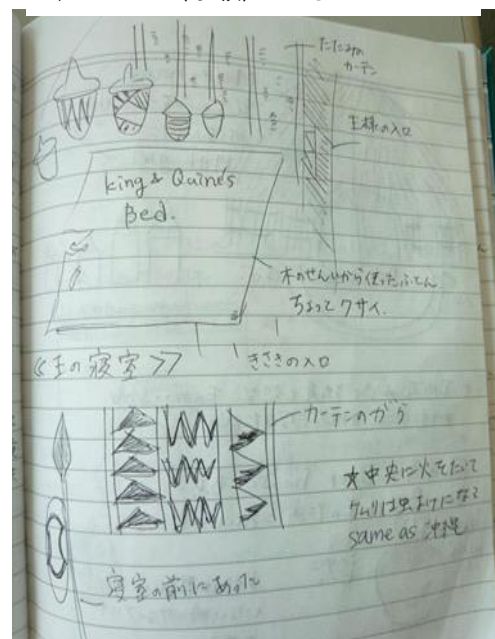 たたみの
カーテン
王様の入口
King & Quine's
Bed.
木のせんいから作ったふとん
ちょっとクサイ.
きさきの入口
《王の寝室》
カーテンのがら
★中央に火をたいて
ケムリは虫よけになる
same as 沖縄
寝室の前にあった